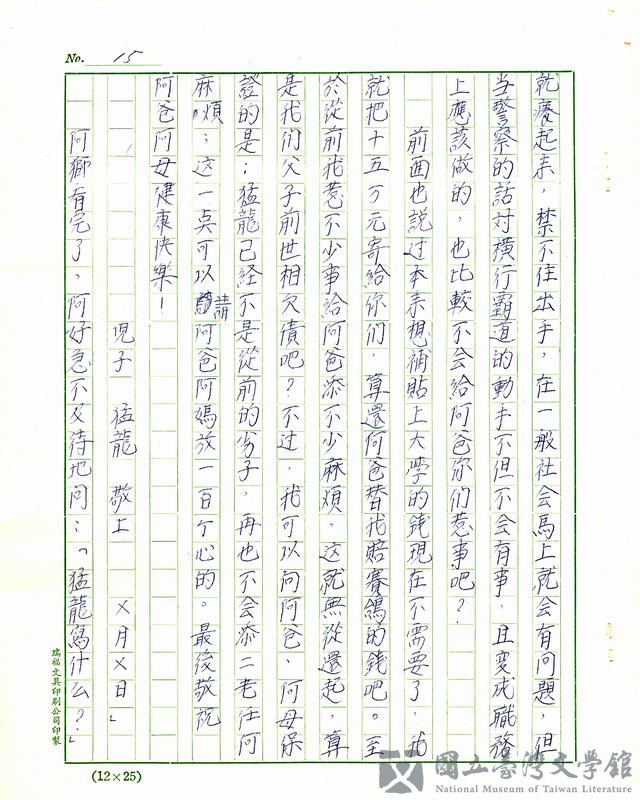 No. 15
就癢起来，禁不住出手，在一般社会馬上就会有问题，但
当警察的話对横行霸道的動手不但不会有事，且变成職務
上應該做的，也比較不会給阿爸你们惹事吧？
前面也説过本来想補貼上大學的錢現在不需要了，我
就把十五万元寄給你们，算還阿爸替我賠賽鴿的錢吧。至
於從前我惹不少事給阿爸添不少麻煩，这就無從還起，算
是我们父子前世相欠債吧？不过，我可以向阿爸、阿母保
證的是：猛龍已経不是從前的劣子，再也不会添二老任何
麻煩；这一点可以請阿爸阿媽放一百个心的。最後敬祝
阿爸阿母健康快樂！
児子 猛龍 敬上 ×月×日」
阿獅看完了，阿好急不及待地问：「猛龍寫什么？」
瑞福文具印刷公司印製
(12×25)
國立臺灣文學館
National Museum of Taiwan Literature